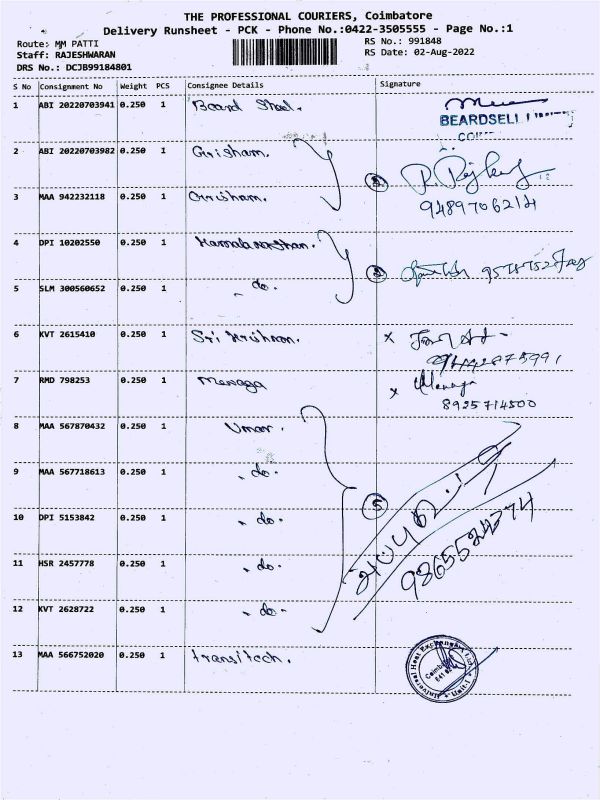 THE PROFESSIONAL COURIERS, Coimbatore
Delivery Runsheet - PCK - Phone No.:0422-3505555 - Page No.:1
Route: MM PATTI
RS No.: 991848
Staff: RAJESHWARAN
RS Date: 02-Aug-2022
DRS No.: DCJB99184801
S No Consignment No Weight PCS Consignee Details Signature
1 ABI 20220703941 0.250 1 Beard Shel.
BEARDSELL
2 ABI 20220703982 0.250 1 Grisham.
3 MAA 942232118 0.250 1 Grisham.
9489706214
4 DPI 10202550 0.250 1
5 SLM 300560652 0.250 1 - do.
6 KVT 2615410 0.250 1 Sri Krishnan.
7 RMD 798253 0.250 1 Menaga
Menaga
8925714500
8 MAA 567870432 0.250 1 Umar.
9 MAA 567718613 0.250 1 - do.
10 DPI 5153842 0.250 1 - do. 5
9865524274
11 HSR 2457778 0.250 1 - do.
12 KVT 2628722 0.250 1 - do -
13 MAA 566752020 0.250 1 transitech.
Universal Heat Exchangers Ltd. Unit-I